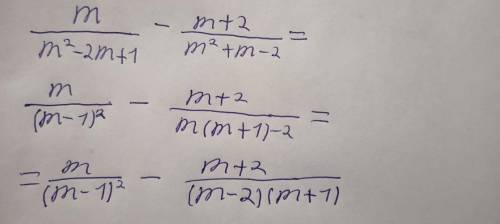 m/(m²-2m+1) - (m+2)/(m²+m-2) =
m/(m-1)² - (m+2)/(m(m+1)-2) =
= m/(m-1)² - (m+2)/((m-2)(m+1))